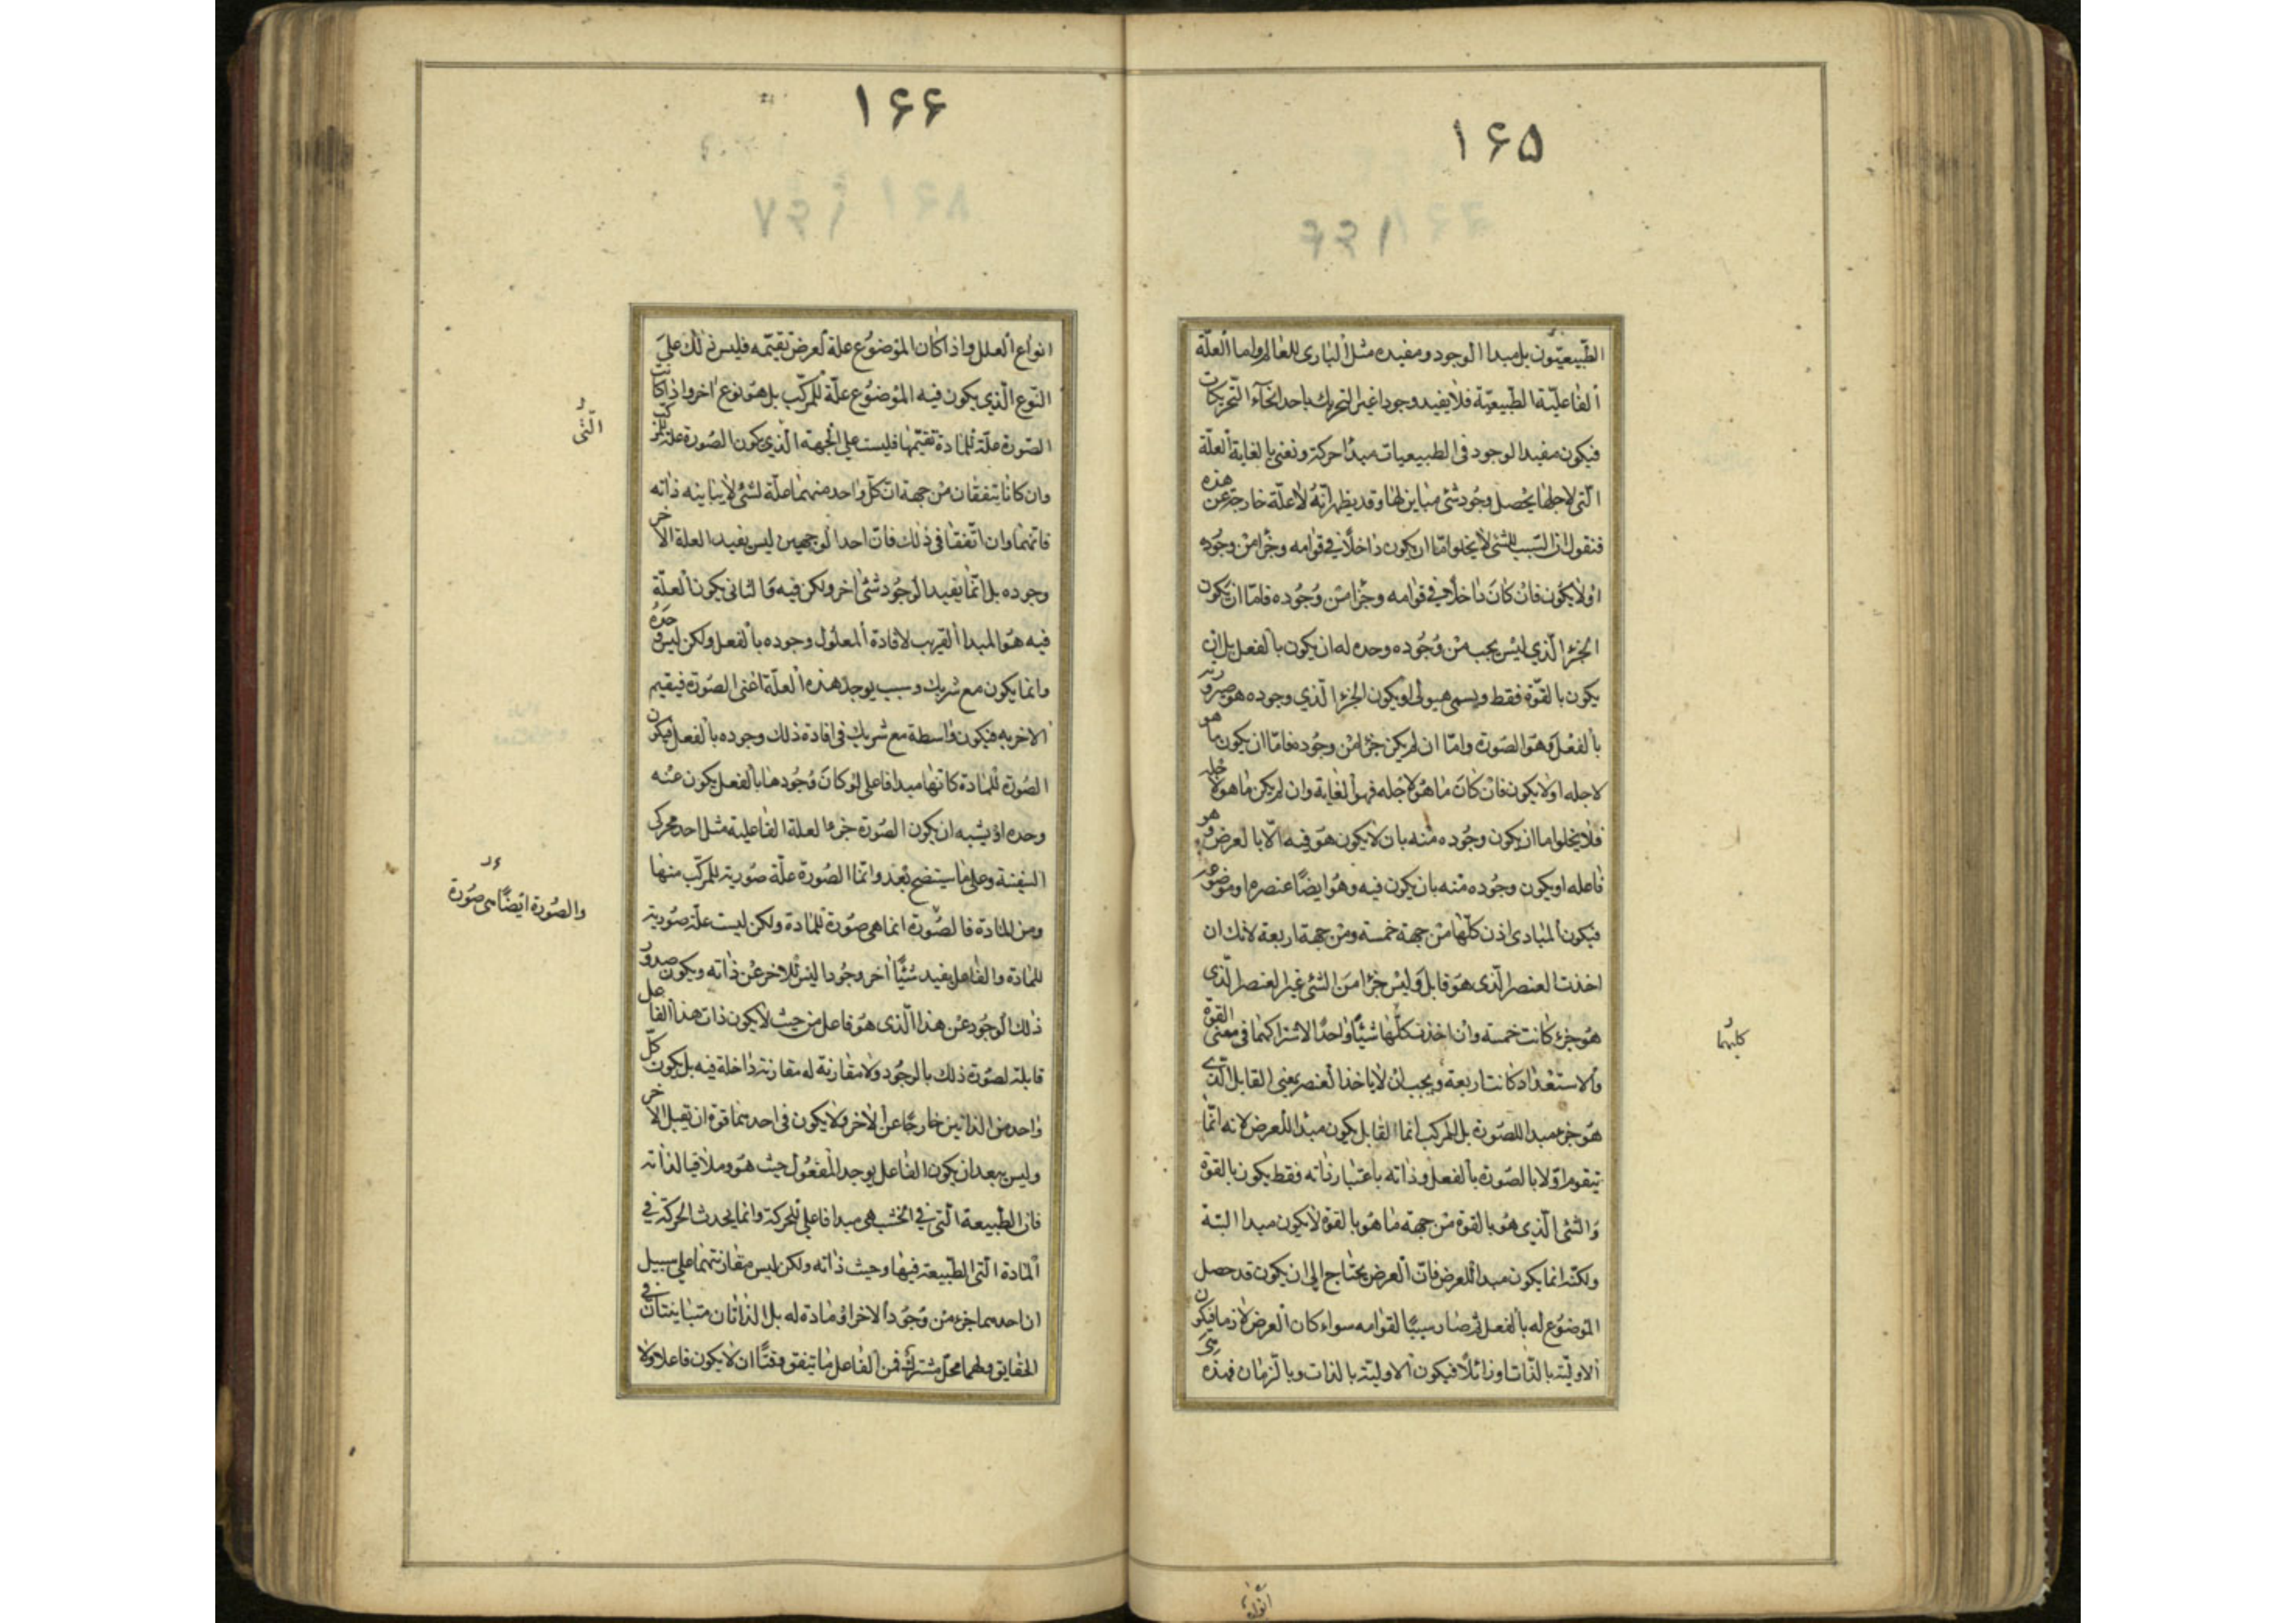 ۱۶۵
الطّبيعيّون بل مبدا الوجود ومفيده مثل الباری للعالم واما العلّة
الفاعليّة الطّبيعيّة فلا يفيد وجودا غير التحريك باحد انحآء التّحريكات
فيكون مفيد الوجود فی الطبيعيات مبدأ حركة ونعنی بالغاية العلّة
الّتی لاجلها يحصل وجود شئ مباين لها وقد يظهر انّه لا علّة خارجة عن هذه
فنقول ان السّبب للشئ لا يخلو امّا ان يكون داخلاً فی قوامه وجزأ من وجوده
او لا يكون فان كان داخلاً فی قوامه وجزأ من وجوده فامّا ان يكون
الجزء الّذی ليس يجب من وجوده وحده له ان يكون بالفعل بل ان
يكون بالقوّة فقط ويسمی هيولی او يكون الجزء الّذی وجوده هو صيرورته
بالفعل وهو الصّورة وامّا ان لم يكن جزأ من وجوده فامّا ان يكون ما هو
لاجله او لا يكون فان كان ما هو لاجله فهو الغاية وان لم يكن ما هو لاجله
فلا يخلو اما ان يكون وجوده منه بان لا يكون هو فيه الّا بالعرض وهو
فاعله او يكون وجوده منه بان يكون فيه وهو ايضاً عنصره او موضوعه
فيكون المبادی اذن كلّها من جهة خمسة ومن جهة اربعة لانك ان
اخذت العنصر الّذی هو قابل وليس جزأ من الشئ غير العنصر الّذی
هو جزء كانت خمسة وان اخذت كلّها شيئاً واحداً لاشتراكهما فی معنی القوة
والاستعداد كانت اربعة ويجب ان لا ياخذ العنصر بمعنی القابل الّذی
هو جزء مبدا للصّورة بل للمركب انما القابل يكون مبدا للعرض لانه انّما
يتقوم اوّلا بالصّورة بالفعل وذاته باعتبار ذاته فقط يكون بالقوّة
والشئ الّذی هو بالقوة من جهة ما هو بالقوة لا يكون مبدا البتة
ولكنّه انما يكون مبدا للعرض فانّ العرض يحتاج الی ان يكون قد حصل
الموضوع له بالفعل ثم صار سببا لقوامه سواء كان العرض لازما فيكون
الاوليّة بالذّات او زائلاً فيكون الاوليّة بالذات وبالزمان فهذه هی
كليهما
انواع
۱۶۶
انواع العلل واذا كان الموضوع علة لعرض تقيّمه فليس ذلك علی
النّوع الّذی يكون فيه الموضوع علّة للمركّب بل هو نوع اخر واذا كانت
الصّورة علّة للمادة تقيّمها فليست علی الجهة الّذی يكون الصّورة علة للمركّب
وان كانا يتفقان من جهة انّ كلّ واحد منهما علّة لشئ لا يباينه ذاته
فانّهما وان اتّفقا فی ذلك فانّ احد الوجهين ليس يفيد العلة الاخر
وجوده بل انّما يفيد الوجود شئ اخر ولكن فيه والثانی يكون العلّة
فيه هو المبدا القريب لافادة المعلول وجوده بالفعل ولكن ليس وحده
وانما يكون مع شريك وسبب يوجد هذه العلّة اعنی الصّورة فيقيم
الاخر به فيكون واسطة مع شريك فی افادة ذلك وجوده بالفعل فيكون
الصّورة للمادة كانّها مبدا فاعلی لو كان وجودها بالفعل يكون عنه
وحده او يشبه ان يكون الصّورة جزءا لعلة الفاعلية مثل احد محركی
السّفينة وعلی ما سيتضح بعد وانّما الصّورة علّة صوريّة للمركّب منها
ومن المادة فالصّورة انما هی صورة للمادة ولكن ليست علّة صوريّة
للمادة والفاعل يفيد شيئًا اخر وجودا ليس للاخر عن ذاته ويكون صدور
ذلك الوجود عن هذا الّذی هو فاعل من حيث لا يكون ذات هذا الفاعل
قابلة لصورة ذلك بالوجود ولا مقارنة له مقارنة داخلة فيه بل يكون كلّ
واحد من الذاتين خارجًا عن الاخر ولا يكون فی احدهما قوة ان يقبل الاخر
وليس ببعد ان يكون الفاعل يوجد المفعول حيث هو وملاقيا لذاته
فان الطّبيعة الّتی فی الخشب هی مبدا فاعلی للحركة وانما يحدث الحركة فی
المادة الّتی الطّبيعة فيها وحيث ذاته ولكن ليس مقارنتهما علی سبيل
ان احدهما جزء من وجود الاخر او مادة له بل الذاتان متباينتان فی
الحقايق ولهما محل مشترك فمن الفاعل ما يتفق وقتًا ان لا يكون فاعلا ولا
الّتی
والصّورة ايضًا هی صورة